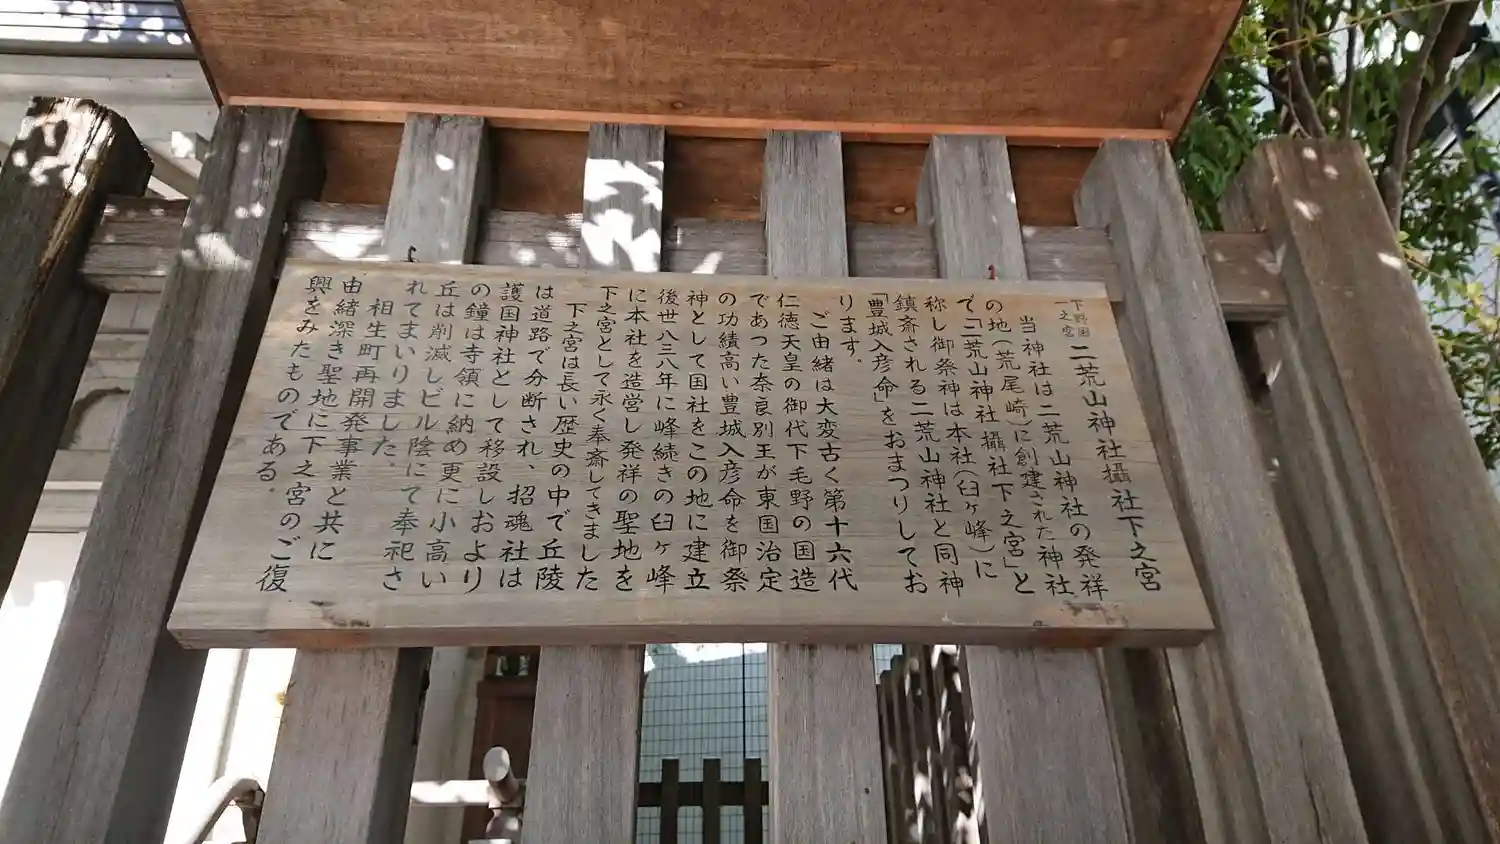 下野国
一之宮
二荒山神社攝社下之宮
当神社は二荒山神社の発祥
の地(荒尾崎)に創建された神社
で「二荒山神社攝社下之宮」と
称し御祭神は本社(臼ヶ峰)に
鎮斎される二荒山神社と同神
「豊城入彦命」をおまつりしてお
ります。
ご由緒は大変古く第十六代
仁徳天皇の御代下毛野の国造
であった奈良別王が東国治定
の功績高い豊城入彦命を御祭
神として国社をこの地に建立
後世八三八年に峰続きの臼ヶ峰
に本社を造営し発祥の聖地を
下之宮として永く奉斎してきました
下之宮は長い歴史の中で丘陵
は道路で分断され、招魂社は
護国神社として移設しおより
の鐘は寺領に納め更に小高い
丘は削減しビル陰にて奉祀さ
れてまいりました、
相生町再開発事業と共に
由緒深き聖地に下之宮のご復
興をみたものである。